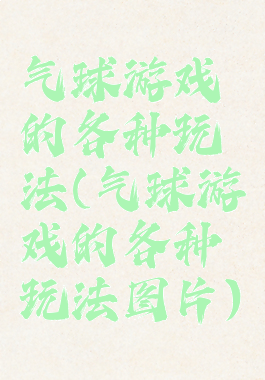 气球游戏
的各种玩
法(气球游
戏的各种
玩法图片)